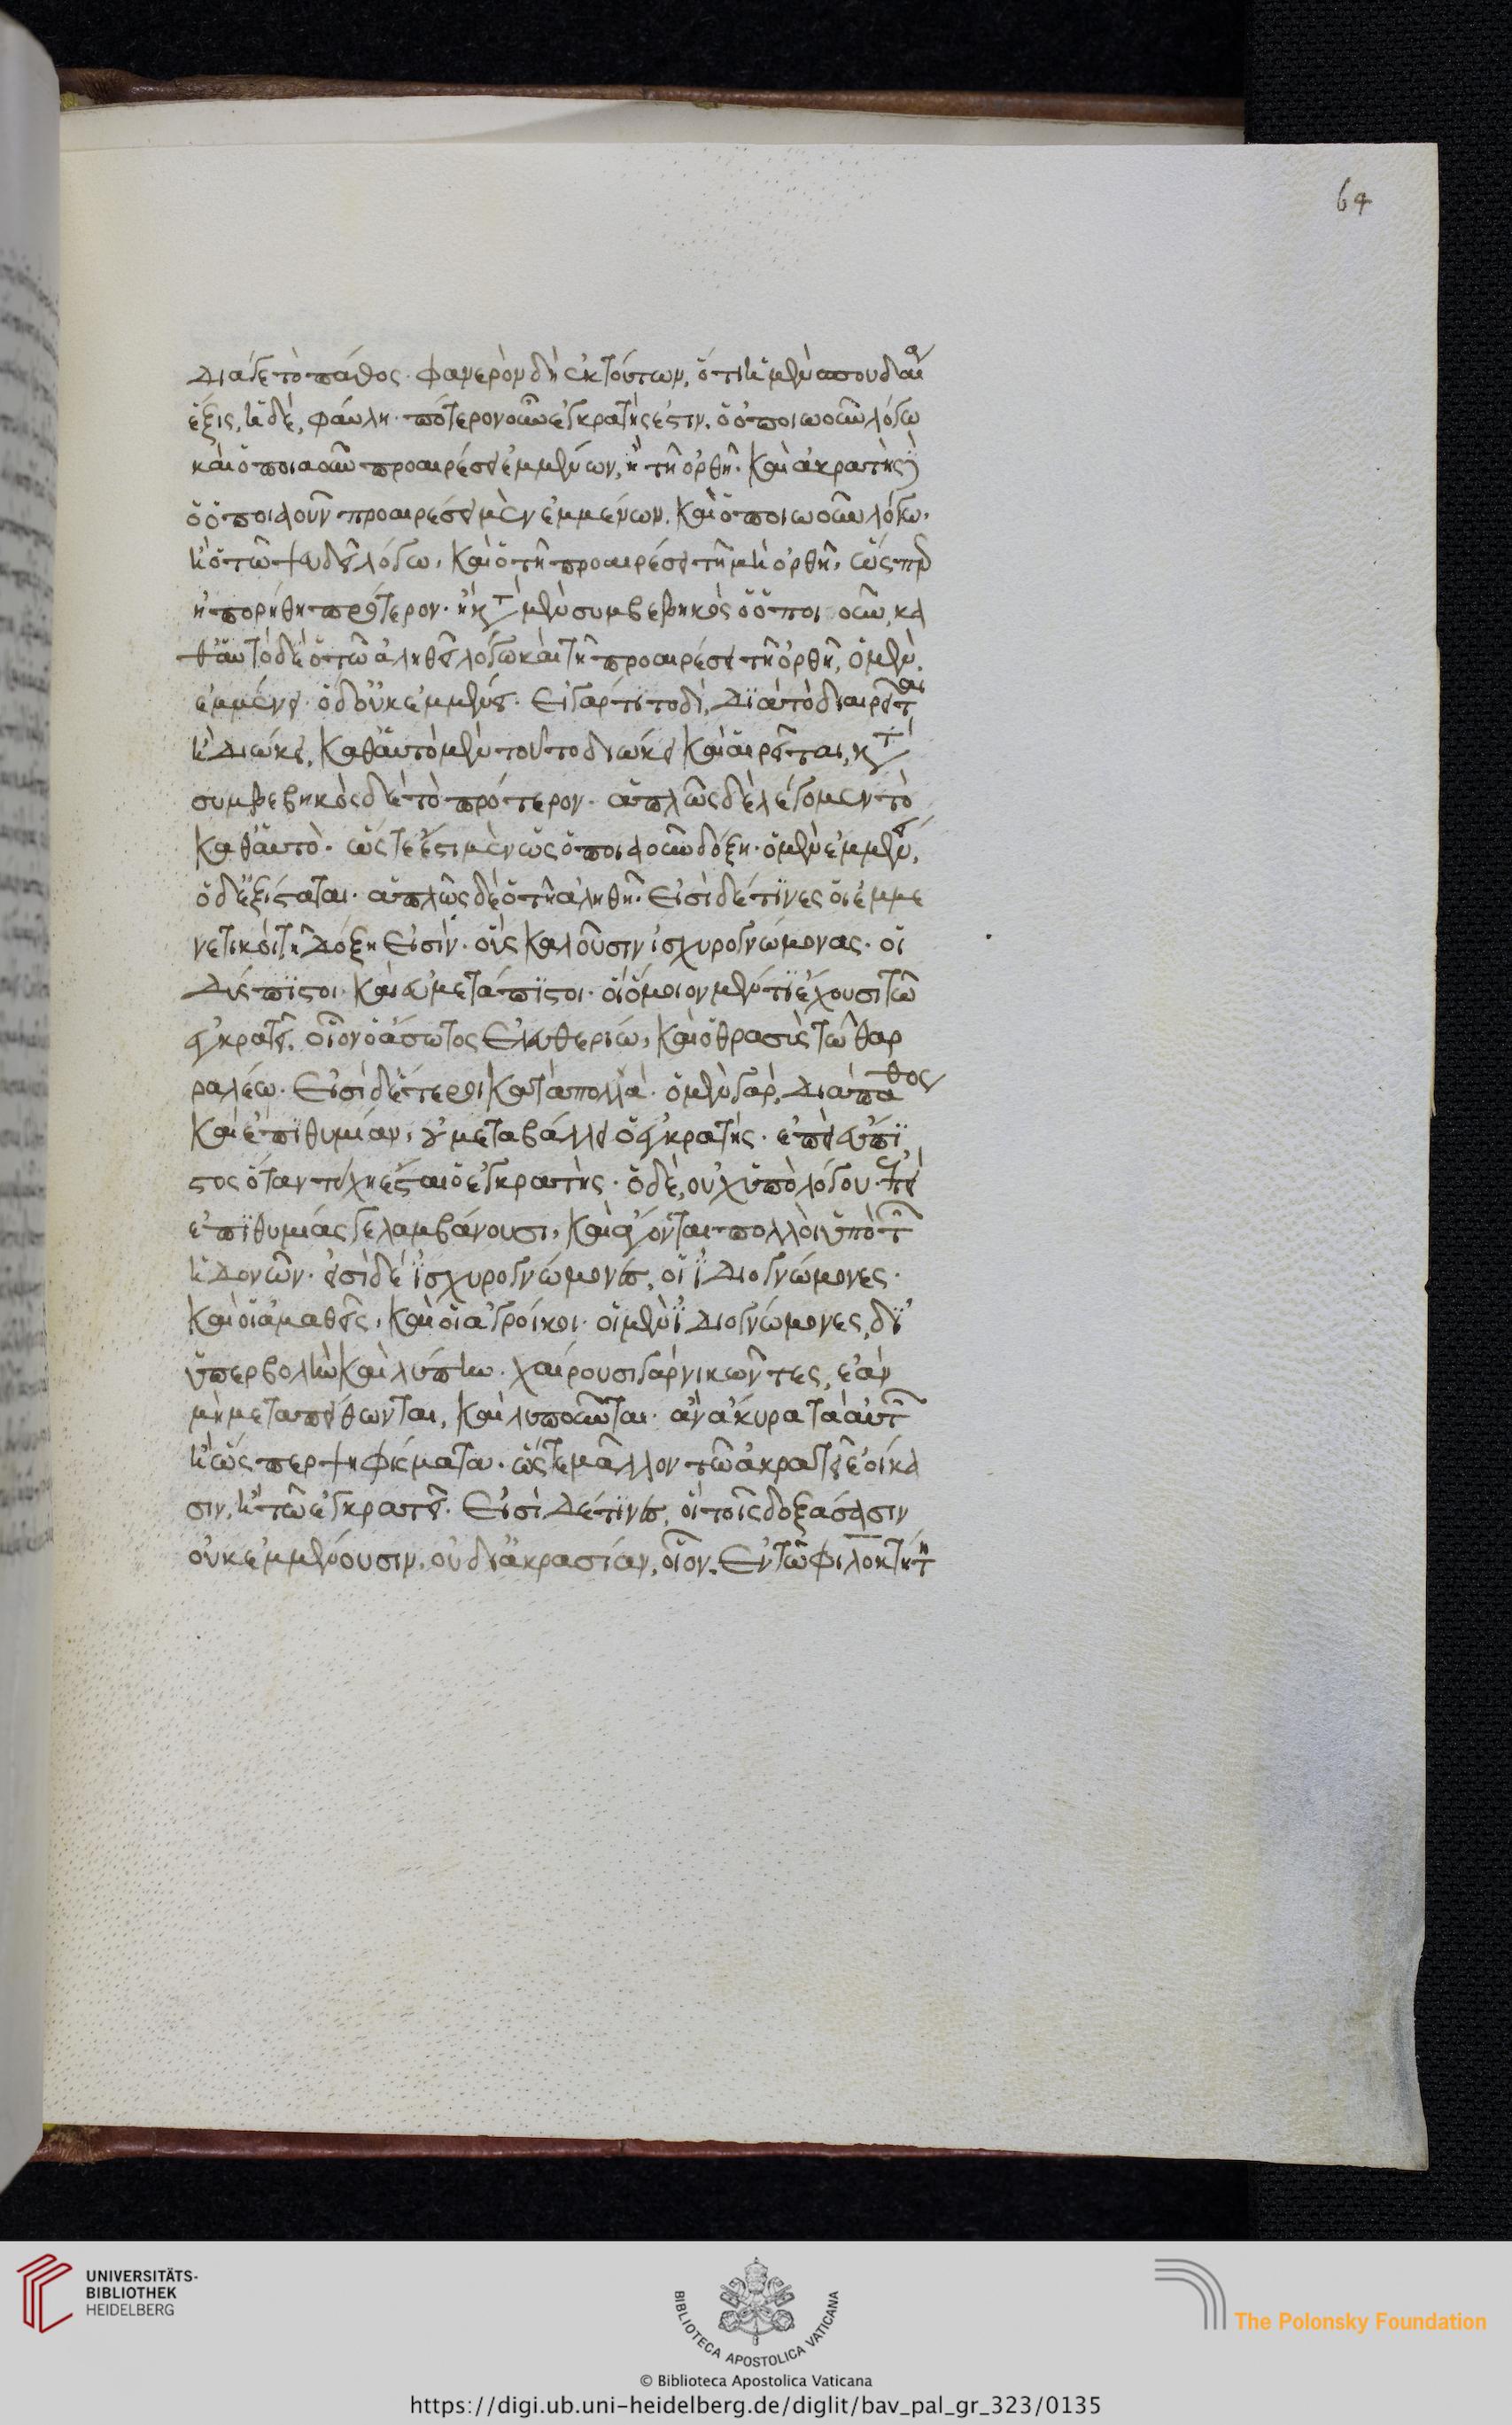 64
διά γε τὸ πάθος. φανερὸν δὴ ἐκ τούτων, ὅτι ἡ μὲν σπουδαία
ἕξις, ἡ δὲ, φαύλη. πότερον οὖν ἐγκρατής ἐστιν. ὁ ὁποιωοῦν λόγω
καὶ ὁποιαοῦν προαιρέσει ἐμμένων, ἢ τῆ ὀρθῆ. καὶ ἀκρατὴς
ὁ ὁποιαοῦν προαιρέσει μὲν ἐμμένων. καὶ ὁποιωοῦν λόγω.
ἢ ὁ τῶ ψευδεῖ λόγω, καὶ ὁ τῆ προαιρέσει τῆ μὴ ὀρθῆ, ὥσπερ
ἠπορήθη πρότερον. ἢ κατὰ μὲν συμβεβηκὸς ὁ ὁποι οοῦν, κα
θ' αὑτὸ δὲ ὁ τῶ ἀληθεῖ λόγω καὶ τῆ προαιρέσει τῆ ὀρθῆ, ὁ μὲν.
ἐμμένει. ὁ δ' οὐκ ἐμμένει. Εἰ γάρ τι τοδὶ, διὰ τὸ δὶ αἱρεῖται
ἢ διώκει, καθ' αὑτὸ μὲν τοῦτο διώκει καὶ αἱρεῖται, κατὰ
συμβεβηκὸς δὲ τὸ πρότερον. ἁπλῶς δὲ λέγομεν τὸ
καθ' αὑτὸ. ὥστε ἔστι μὲν ὡς ὁποιαοῦν δόξη. ὁ μὲν ἐμμένει,
ὁ δ' ἐξίσταται. ἁπλῶς δὲ ὁ τῆ ἀληθῆ. Εἰσὶ δέ τινες οἳ ἐμμε
νετικοὶ τῆ δόξη εἰσίν. οὓς καλοῦσιν ἰσχυρογνώμονας. οἱ
δύσπιστοι. καὶ εὐμετάπιστοι. οἳ ὅμοιον μέν τι ἔχουσι τῶ
ἐγκρατεῖ, οἷον ὁ ἄσωτος Ἐλευθερίω, καὶ ὁ θρασὺς τῶ θαρ
ραλέω. Εἰσὶ δ' ἕτεροι κατὰ πολλὰ. ὁ μὲν γὰρ, διὰ πάθος
καὶ ἐπιθυμίαν, οὐ μεταβάλλει ὁ ἐγκρατής. ἐπεὶ εὔπι
στος ὅταν τύχη ἔσται ὁ ἐγκρατής. ὁ δὲ, οὐχ ὑπὸ λόγου. ἐπεὶ
ἐπιθυμίας γε λαμβάνουσι, καὶ ἄγονται πολλοὶ ὑπὸ τῶν
ἡδονῶν. εἰσὶ δὲ ἰσχυρογνώμονες, οἱ ἰδιογνώμονες.
καὶ οἱ ἀμαθεῖς, καὶ οἱ ἀγροῖκοι. οἱ μὲν ἰδιογνώμονες, δι'
ὑπερβολὴν καὶ λύπην. χαίρουσι γὰρ νικῶντες, ἐὰν
μὴ μεταπείθωνται, καὶ λυποῦνται. ἂν ἄκυρα τὰ αὐτῶν
ἢ ὥσπερ ψηφίσματα. ὥστε μᾶλλον τῶ ἀκρατεῖ ἐοίκα
σιν, ἢ τῶ ἐγκρατεῖ. Εἰσὶ δέ τινες, οἳ τοῖς δόξασασιν
οὐκ ἐμμένουσιν, οὐ δι' ἀκρασίαν, οἷον. Ἐν τῶ φιλοκτήτη
UNIVERSITÄTS-
BIBLIOTHEK
HEIDELBERG
BIBLIOTECA APOSTOLICA VATICANA
The Polonsky Foundation
© Biblioteca Apostolica Vaticana
https://digi.ub.uni-heidelberg.de/diglit/bav_pal_gr_323/0135